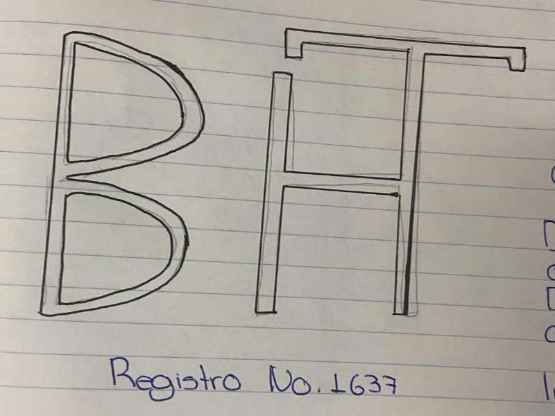 BHT
Registro No. 1637